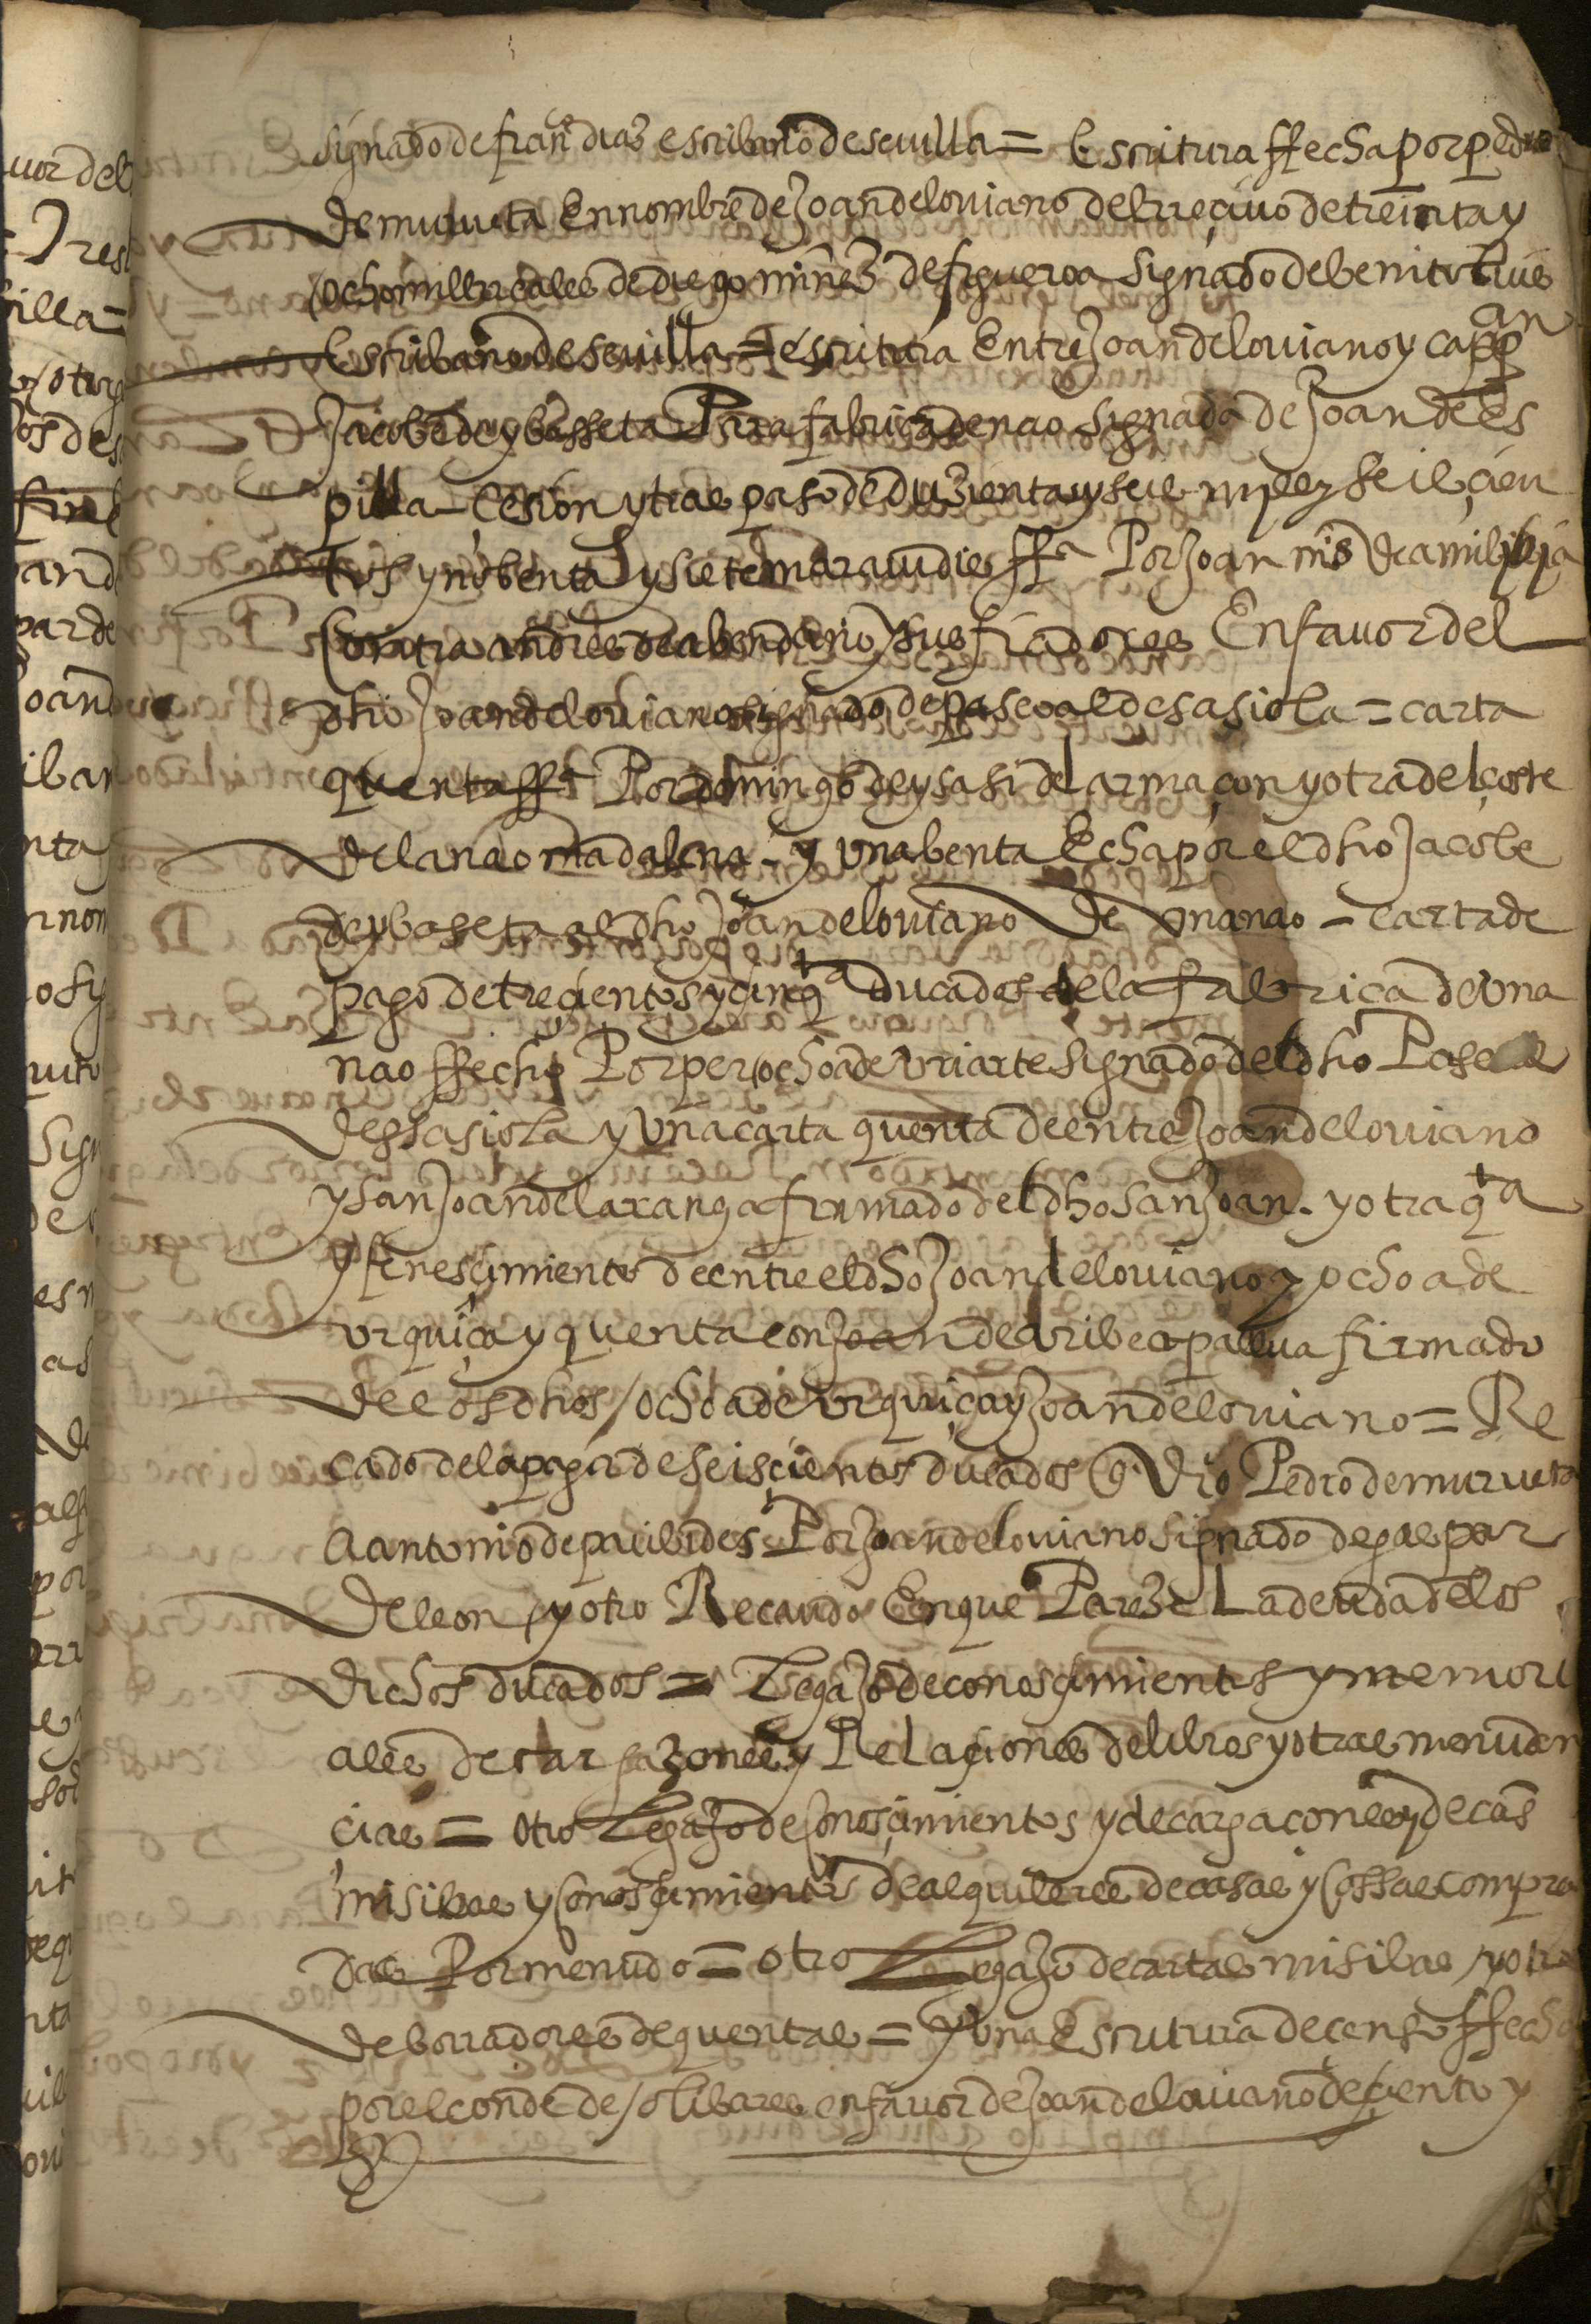 signado de fran^co diaz escribano de seuilla = Escritura ffecha por pedro
de murueta En nombre de Joan de louiano del rreçiuo de treinta y
ocho mill rreales de diego nuñez de figueroa signado de benito luis
Escribano de seuilla = escritura Entre Joan de louiano y cap^an
Jacobe de ybasseta Para fabrica de nao signada de Joan de es
pilla – Cesion y traspaso de duzientas y seis mill y seisçien
tos y nobenta y siete marauidies ff^a Por Joan mrs de amilibia
Contra andres de abendaño y sus fiadores En fauor del
dho Joan de louiano signado de pascoal de sasiola = carta
quenta ff^a Por domingo de ysasi del armaçon y otra del coste
de la nao madalena – y vna benta Echa por el dho Jacobe
de ybaseta al dho Joan de louiano de vna nao – carta de
pago de treçientos y çinq^ta ducados de la fabrica de vna
nao ffecho Por per ochoa de vriarte signado del dho Pascoal
de ssasiola y vna carta quenta de entre Joan de louiano
y san Joan de la xanga firmado del dho san Joan . y otra q^ta
y fenesçimiento de entre el dho Joan de louiano y ochoa de
vrquiça y quenta con Joan de aribecapalua firmado
de los dhos ochoa de vrquiça y Joan de louiano = Re
cado de la paga de seisçientos ducados q dio Pedro de murueta
a antonio de paulides Por Joan de louiano signado de gaspar
de leon y otro Recaudo En que Pareze La deuda de los
dichos ducados = Legajo de conosçimientos y memori
ales de cargazones y Relaçiones de libros y otras menuden
cias = otro Legajo de conosçimientos y de cargaçones y de cas
misibas y conosçimientos de alquileres de casas y cossas compra
das Por menudo = otro Legajo de cartas misibas y otro
de borradores de quentas = y vna Escritura de çenso ffecha
por el conde de olibares en fauor de Joan de louiano de çiento y